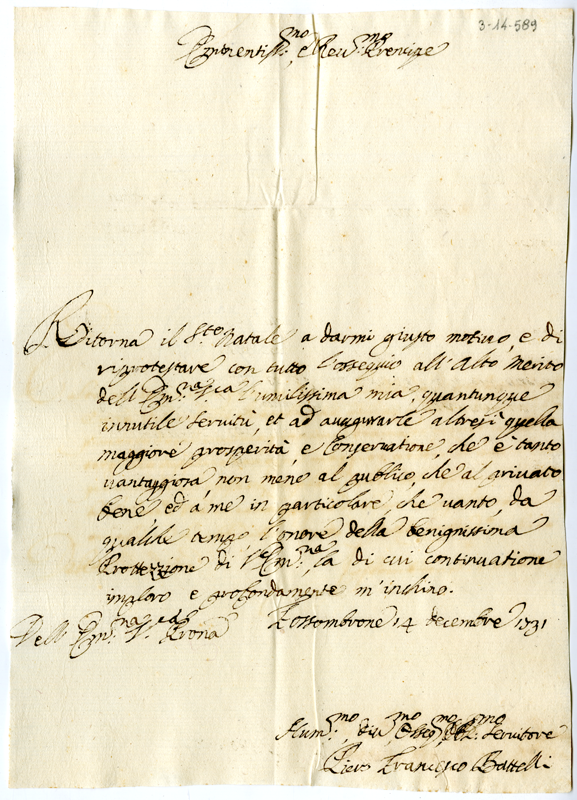 3-14-589
Eminentiss.mo, e Rev.mo Prencipe
Ritorna il S.to Natale a darmi giusto motivo, e di
riprotestare con tutto l'ossequio all'Alto Merito
dell'Em.za V.ra l'umilissima mia, quantunque
innutile servitù, et ad augurarle altresì quella
maggiore prosperità, e conservatione, che è tanto
vantaggiosa non meno al publico, che al privato
bene ed a me in particolare, che vanto, da
qualche tempo l'onore della benignissima
Prottezzione di V.ra Em.za, la di cui continuatione
imploro e profondamente m'inchino.
Dell'Em.za V.ra Fossombrone 14 decembre 1731
Hum.mo, Div.mo, Osseq.mo Obl.mo Servitore
Pier Francesco Battelli